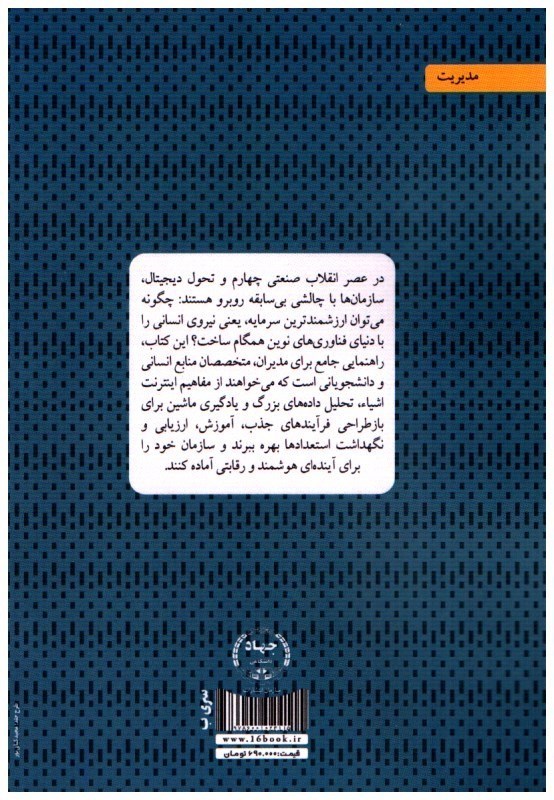 مدیریت
در عصر انقلاب صنعتی چهارم و تحول دیجیتال،
سازمان‌ها با چالشی بی‌سابقه روبرو هستند: چگونه
می‌توان ارزشمندترین سرمایه، یعنی نیروی انسانی را
با دنیای فناوری‌های نوین همگام ساخت؟ این کتاب،
راهنمایی جامع برای مدیران، متخصصان منابع انسانی
و دانشجویانی است که می‌خواهند از مفاهیم اینترنت
اشیاء، تحلیل داده‌های بزرگ و یادگیری ماشین برای
بازطراحی فرآیندهای جذب، آموزش، ارزیابی و
نگهداشت استعدادها بهره ببرند و سازمان خود را
برای آینده‌ای هوشمند و رقابتی آماده کنند.
جهاد
دانشگاهی
سری ب
www.16book.ir
قیمت: ۶۹۰.۰۰۰ تومان
طرح جلد: